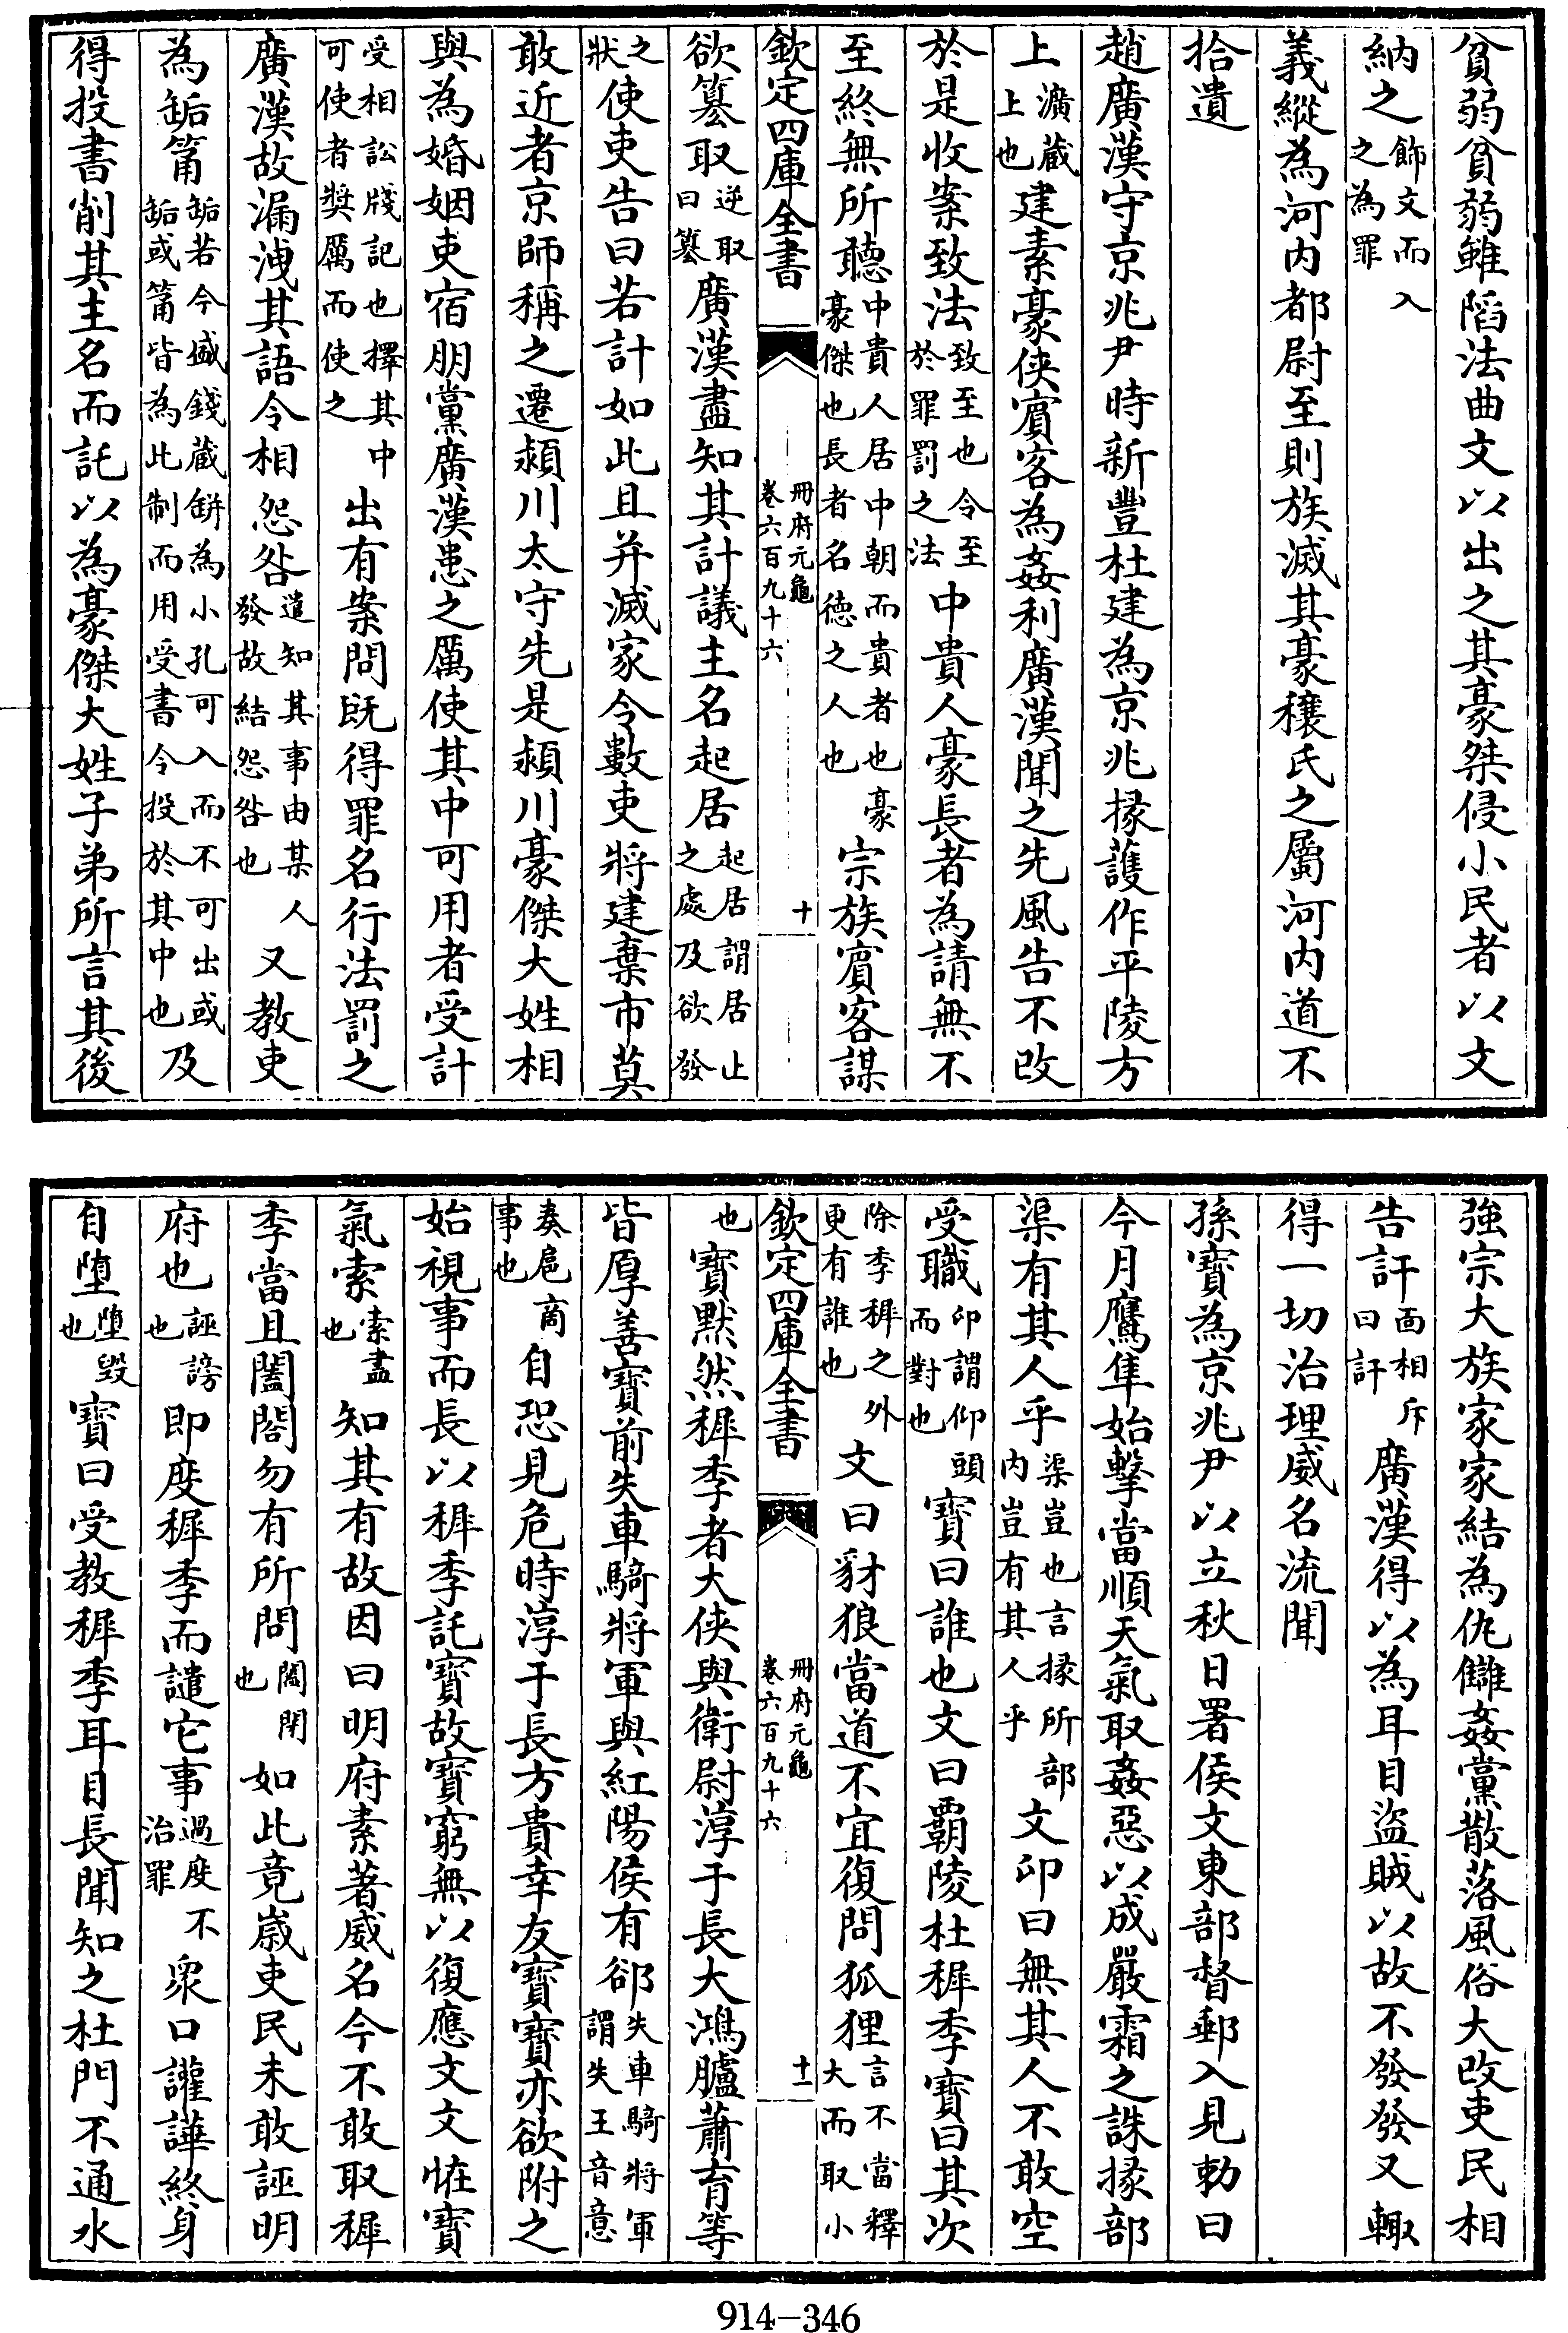 貧弱貧弱雖䧟法曲文以出之其豪桀侵小民者以文
納之飾文而入之為罪
義縱為河内都尉至則族滅其豪穰氏之屬河内道不
拾遺
趙廣漢守京兆尹時新豐杜建為京兆掾護作平陵方
上瀇蔵上也建素豪俠賓客為姦利廣漢聞之先風告不改
於是收案致法致至也令至於罪罰之法中貴人豪長者為請無不
至終無所聽中貴人居中朝而貴者也豪豪傑也長者名徳之人也宗族賓客謀
欽定四庫全書 冊府元龜 卷六百九十六 十
欲簒取逆取曰簒廣漢盡知其計議主名起居起居謂居止之處及欲發
之狀使吏告曰若計如此且并滅家令數吏將建棄市莫
敢近者京師稱之遷潁川太守先是潁川豪傑大姓相
與為婚姻吏宿朋黨廣漢患之厲使其中可用者受計
受相訟牋記也擇其中可使者奬厲而使之出有案問既得罪名行法罰之
廣漢故漏洩其語令相怨咎遣知其事由某人發故結怨咎也又教吏
為缿筩缿若今盛錢蔵缾為小孔可入而不可出或缿或筩皆為此制而用受書令投於其中也及
得投書削其主名而託以為豪傑大姓子弟所言其後
強宗大族家家結為仇讎姦黨散落風俗大改吏民相
告訐面相斥曰訐廣漢得以為耳目盜賊以故不發發又輙
得一切治理威名流聞
孫寳為京兆尹以立秋日署侯文東部督郵入見勅曰
今月鷹隼始擊當順天氣取姦惡以成嚴霜之誅掾部
渠有其人乎渠豈也言掾所部内豈有其人乎文卬曰無其人不敢空
受職卬謂仰頭而對也寳曰誰也文曰覇陵杜穉季寳曰其次
除季穉之外更有誰也文曰豺狼當道不宜復問狐狸言不當釋大而取小
欽定四庫全書 冊府元龜 卷六百九十六 十一
也寳黙然穉季者大俠與衛尉淳于長大鴻臚蕭育等
皆厚善寳前失車騎將軍與紅陽侯有郤失車騎將軍謂失王音意
奏扈商事也自恐見危時淳于長方貴幸友寳寳亦欲附之
始視事而長以穉季託寳故寳窮無以復應文文恠寳
氣索索盡也知其有故因曰明府素著威名今不敢取穉
季當且闔閤勿有所問闔閉也如此竟嵗吏民未敢誣明
府也誣謗也即度穉季而譴它事過度不治罪衆口讙譁終身
自墮墮毀也寳曰受教穉季耳目長聞知之杜門不通水
914-346